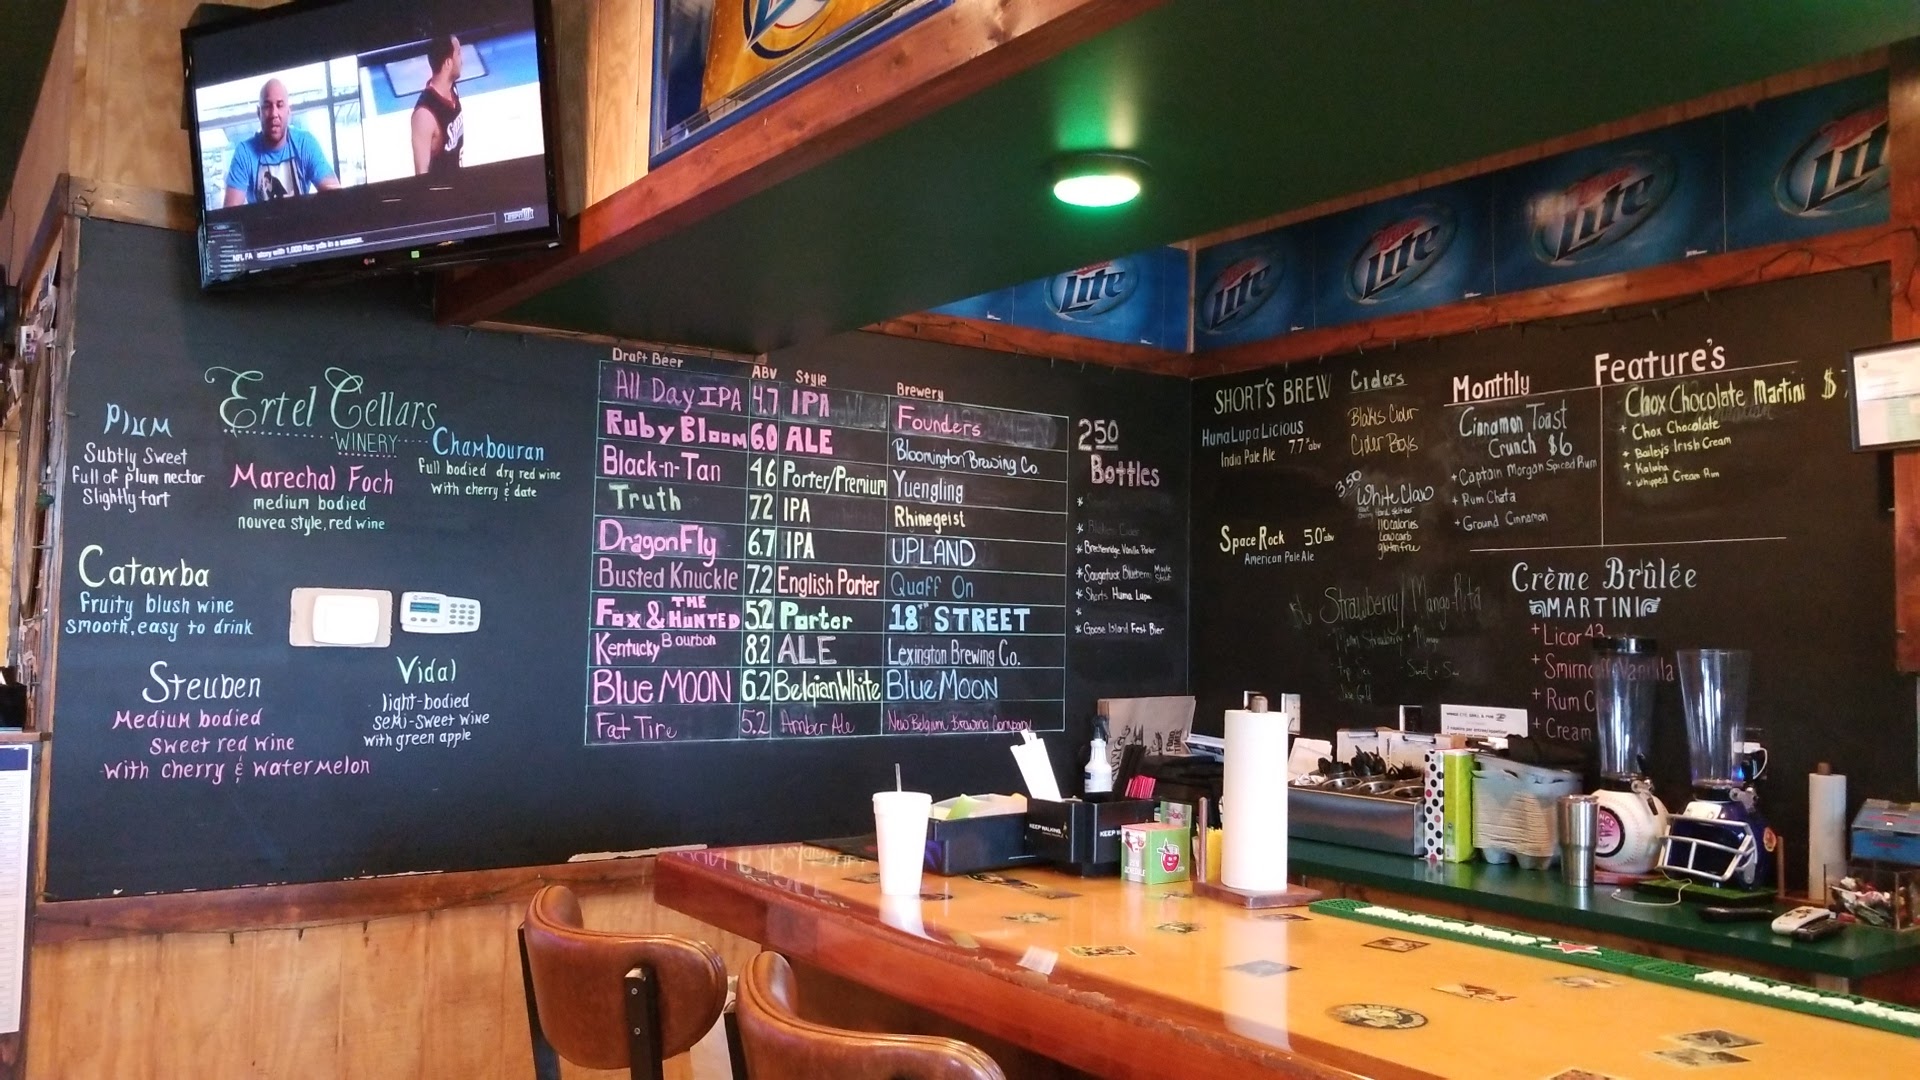 NFL FA story with 1,000 Rec yds in a season.
LG
Lite
Lite
Lite
Lite
Lite
Ertel Cellars
WINERY
Plum
Subtly Sweet
full of plum nectar
Slightly tart
Marechal Foch
medium bodied
nouvea style, red wine
Chambouran
Full bodied dry red wine
with cherry & date
Catawba
fruity blush wine
smooth, easy to drink
Steuben
Medium bodied
sweet red wine
with cherry & watermelon
Vidal
light-bodied
semi-sweet wine
with green apple
Draft Beer ABV Style Brewery
All Day IPA 4.7 IPA Founders
Ruby Bloom 6.0 ALE Bloomington Brewing Co.
Black-n-Tan 4.6 Porter/Premium Yuengling
Truth 7.2 IPA Rhinegeist
DragonFly 6.7 IPA UPLAND
Busted Knuckle 7.2 English Porter Quaff On
Fox & THE HUNTED 5.2 Porter 18th STREET
Kentucky Bourbon 8.2 ALE Lexington Brewing Co.
Blue MOON 6.2 Belgian White Blue MOON
Fat Tire 5.2 Amber Ale New Belgium Brewing Company
250
Bottles
* Breckenridge Vanilla Porter
* Saugatuck Blueberry Maple Stout
* Shorts Huma Lupa
* Goose Island Fest Bier
SHORT'S BREW
HumaLupaLicious
India Pale Ale 7.7% abv
Space Rock 5.0% abv
American Pale Ale
Ciders
Blakes Cider
Cider Boys
350
White Claw
Hard Seltzer
110 calories
low carb
gluten free
Strawberry/Mango-Rita
Feature's
Monthly
Cinnamon Toast
Crunch $6
+ Captain Morgan Spiced Rum
+ Rum Chata
+ Ground Cinnamon
Chox Chocolate Martini $
+ Chox Chocolate
+ Bailey's Irish Cream
+ Kaluha
+ Whipped Cream Rum
Crème Brûlée
MARTINI
+ Licor 43
+ Smirnoff Vanilla
+ Rum C
+ Cream
KEEP WALKING
KEEP W